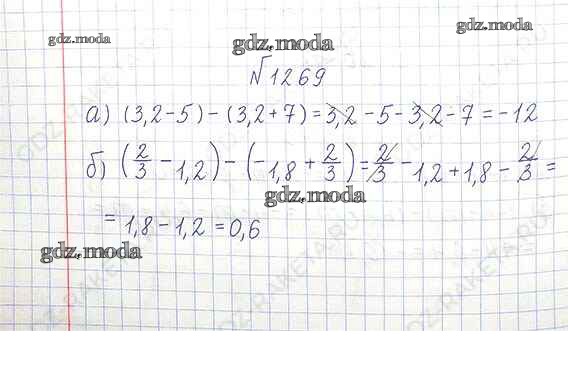 gdz.moda
gdz.moda
gdz.moda
№1269
а) (3,2-5)-(3,2+7)=3,2-5-3,2-7=-12
б) (2/3-1,2)-(-1,8+2/3)=2/3-1,2+1,8-2/3=
gdz.moda
=1,8-1,2=0,6
gdz.moda
GDZ-RAKETA.RU
GDZ-RAKETA.RU
GDZ-RAKETA.RU
GDZ-RAKETA.RU